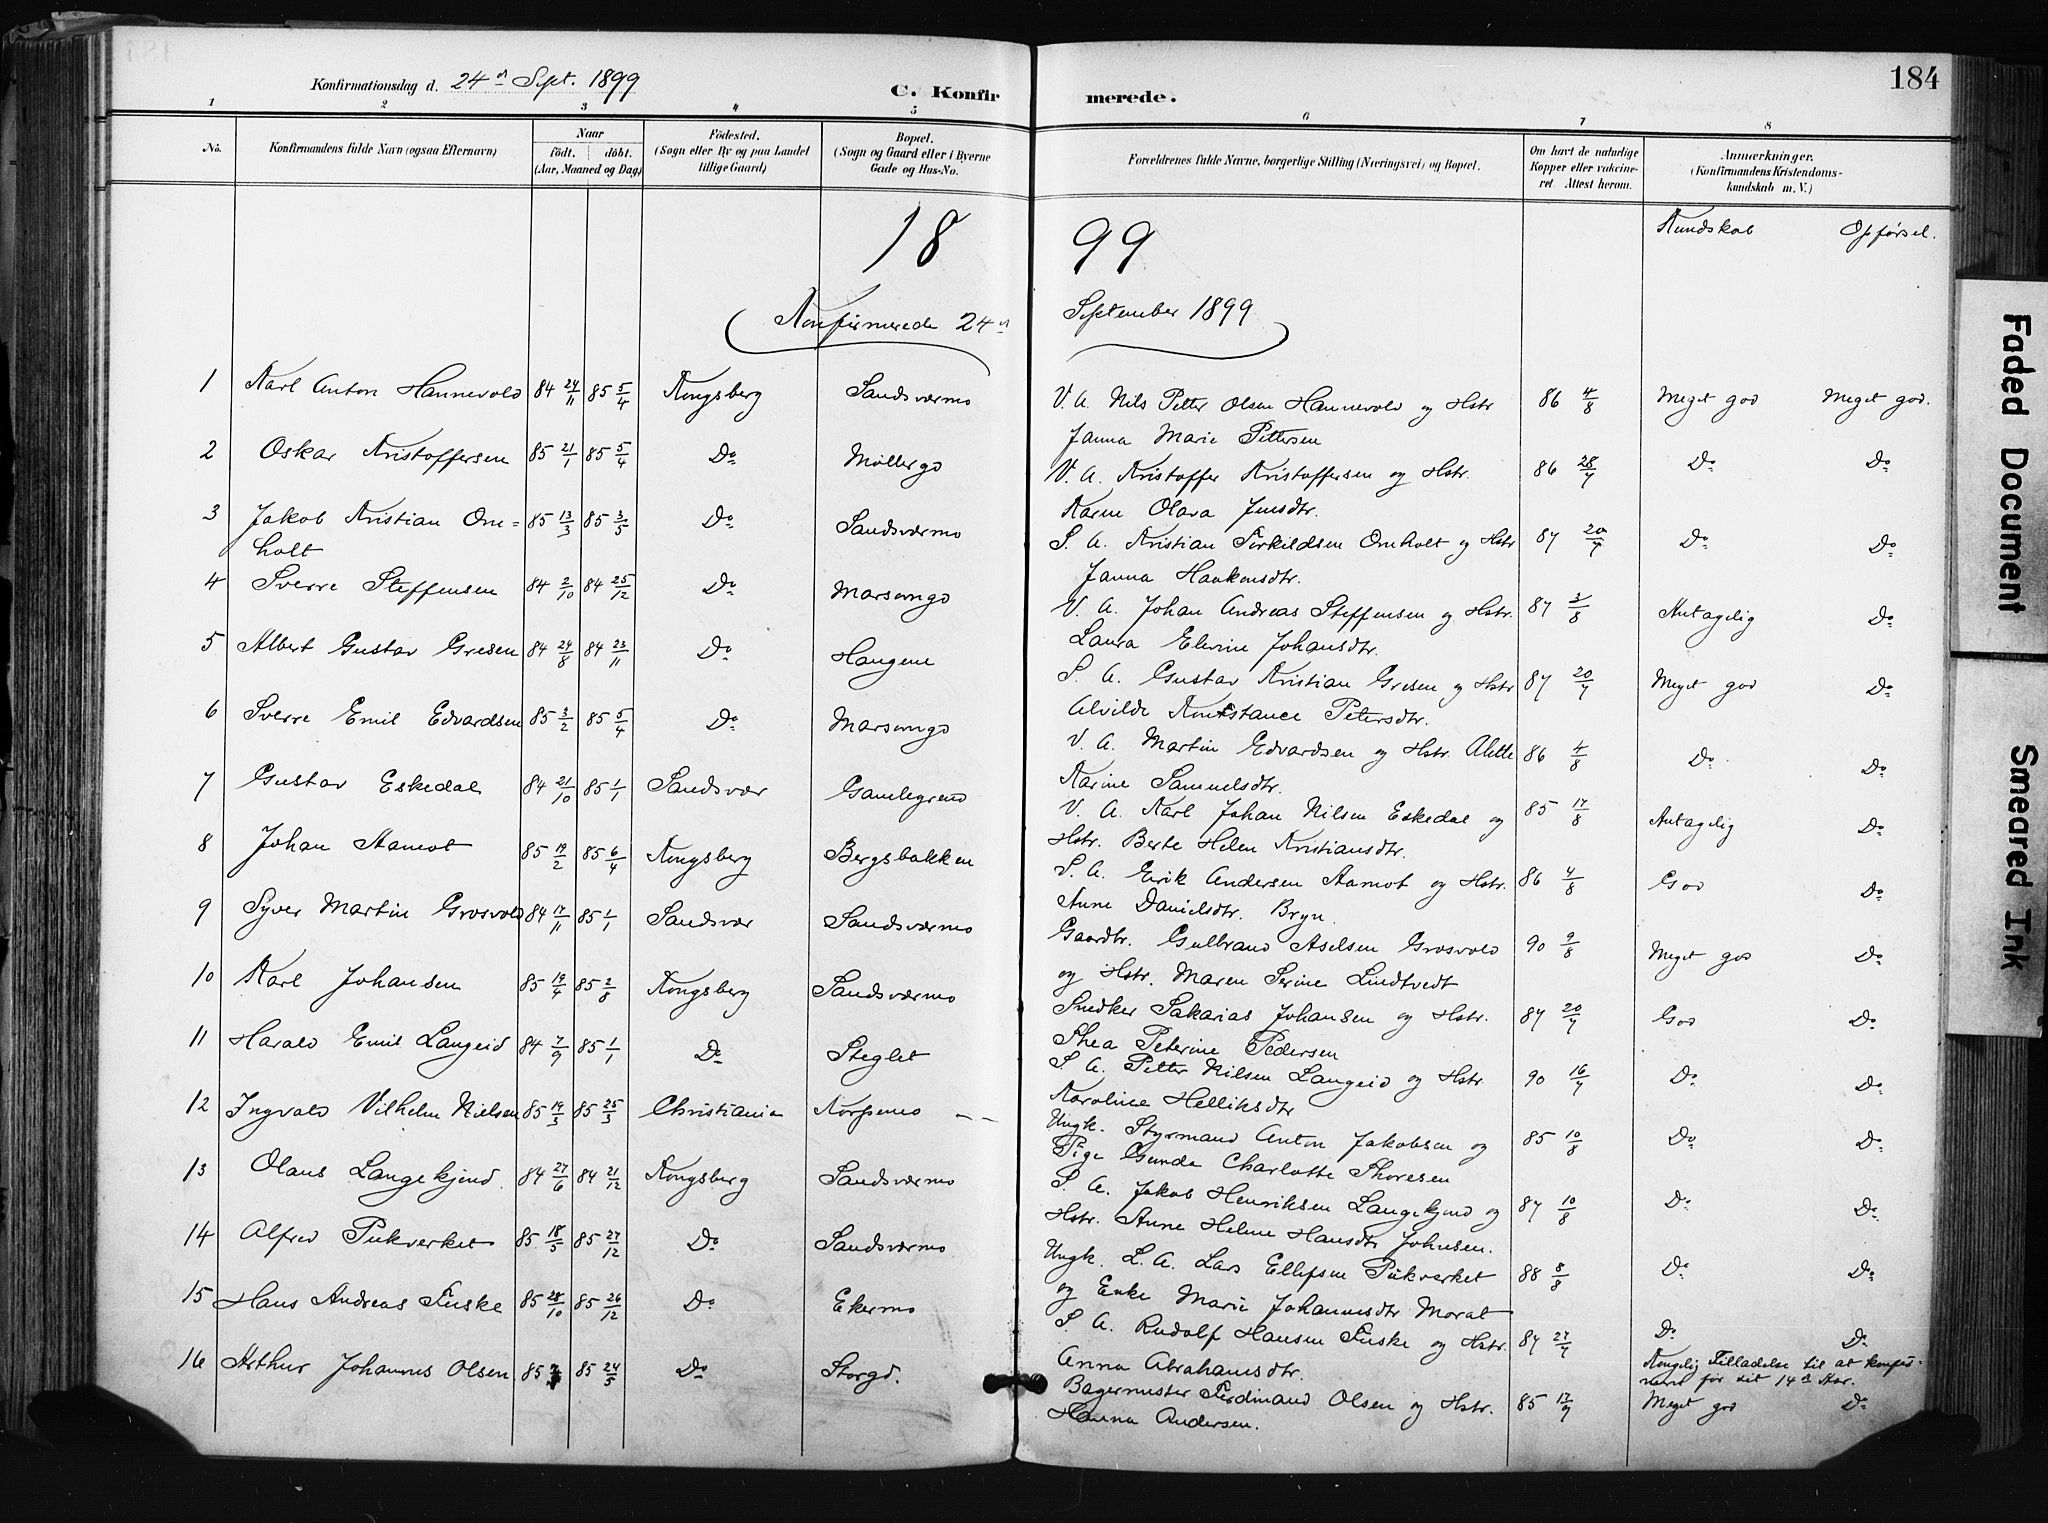 184
Konfirmationsdag d. 24de Sept. 1899
C. Konfirmerede.
1 2 3 4 5 6 7 8
No.
Konfirmandens fulde Navn (ogsaa Efternavn)
Naar
födt. döbt.
(Aar, Maaned og Dag)
Födested.
(Sogn eller By og paa Landet
tillige Gaard)
Bopæl.
(Sogn og Gaard eller i Byerne
Gade og Hus-No.
Forældrenes fulde Navne, borgerlige Stilling (Næringsvei) og Bopæl.
Om havt de naturlige
Kopper eller vakcine-
ret. Attest herom.
Anmærkninger.
(Konfirmandens Kristendoms-
kundskab m. V.)
1899
Kundskab Opførsel.
Konfirmerede 24de September 1899
1 Karl Anton Hannevold 84 24/11 85 5/4 Kongsberg Sandsværmo V. A. Nils Petter Olsen Hannevold og Hstr 86 4/8 Meget god Meget god.
Janna Marie Pettersen
2 Oskar Kristoffersen 85 21/1 85 5/4 Do Møllergd V. A. Kristoffer Kristoffersen og Hstr. 86 28/7 Do Do
Karen Olava Jensdtr.
3 Jakob Kristian Om= 85 13/3 85 3/5 Do Sandsværmo S. A. Kristian Terkildsen Omholt og Hstr 87 20/7 Do Do
holt Janna Haakensdtr.
4 Sverre Steffensen 84 2/10 84 25/12 Do Marsomgd V. A. Johan Andreas Steffensen og Hstr. 87 3/8 Antagelig Do
Laura Elvine Johansdtr.
5 Albert Gustav Gresen 84 24/8 84 23/11 Do Haugene S. A. Gustav Kristian Gresen og Hstr 87 20/7 Meget god Do
Alvilde Konstance Petersdtr.
6 Sverre Emil Edvardsen 85 3/2 85 5/4 Do Marsomgd V. A. Martin Edvardsen og Hstr. Alette 86 4/8 Do Do
Karine Samuelsdtr.
7 Gustav Eskedal 84 21/10 85 1/1 Sandsvær Gamlegrend V. A. Karl Johan Nilsen Eskedal og 85 17/8 Antagelig Do
Hstr. Berte Helen Kristiansdtr.
8 Johan Aamot 85 19/2 85 6/4 Kongsberg Bergsbakken S. A. Erik Andersen Aamot og Hstr. 86 4/8 God Do
Anne Danielsdtr. Bryn.
9 Syver Martin Grosvold 84 17/11 85 1/1 Sandsvær Sandsværmo Gaardbr. Gulbrand Aselsen Grosvold 90 9/8 Meget god Do
og Hstr. Maren Serine Lindtvedt
10 Karl Johansen 85 19/4 85 2/8 Kongsberg Sandsværmo Snedker Sakarias Johansen og Hstr. 87 20/7 God Do
Thea Peterine Pedersen
11 Harald Emil Langeid 84 7/9 85 1/1 Do Steglet S. A. Petter Nilsen Langeid og Hstr. 90 16/7 Do Do
Karoline Helliksdtr
12 Ingvald Vilhelm Nielsen 85 19/3 85 25/3 Christiania Korpemo Ungk. Styrmand Anton Jakobsen og 85 10/8 Do Do
Pige Gunda Charlotte Thoresen
13 Olaus Langekjend 84 27/6 84 21/12 Kongsberg Sandsværmo S. A. Jakob Henriksen Langekjend og 87 10/8 Do Do
Hstr. Anne Helene Hansdtr Johnsen.
14 Alfred Pukverket 85 18/5 85 27/12 Do Sandsværmo Ungk. L. A. Lars Ellefsen Pukverket 88 8/8 Do Do
og Enke Marie Johannesdtr Morat
15 Hans Andreas Fuske 85 28/10 85 26/12 Do Ekermo S. A. Rudolf Hansen Fuske og Hstr. 87 27/7 Do Do
Anna Abrahamsdtr. Kongelig Tilladelse til at konfir-
meret før sit 14de Aar.
16 Arthur Johannes Olsen 85 85 24/5 Do Storgd. Bagermester Ferdinand Olsen og Hstr. 85 17/9 Meget god Do
Hanna Andersen.
Faded Document
Smeared Ink